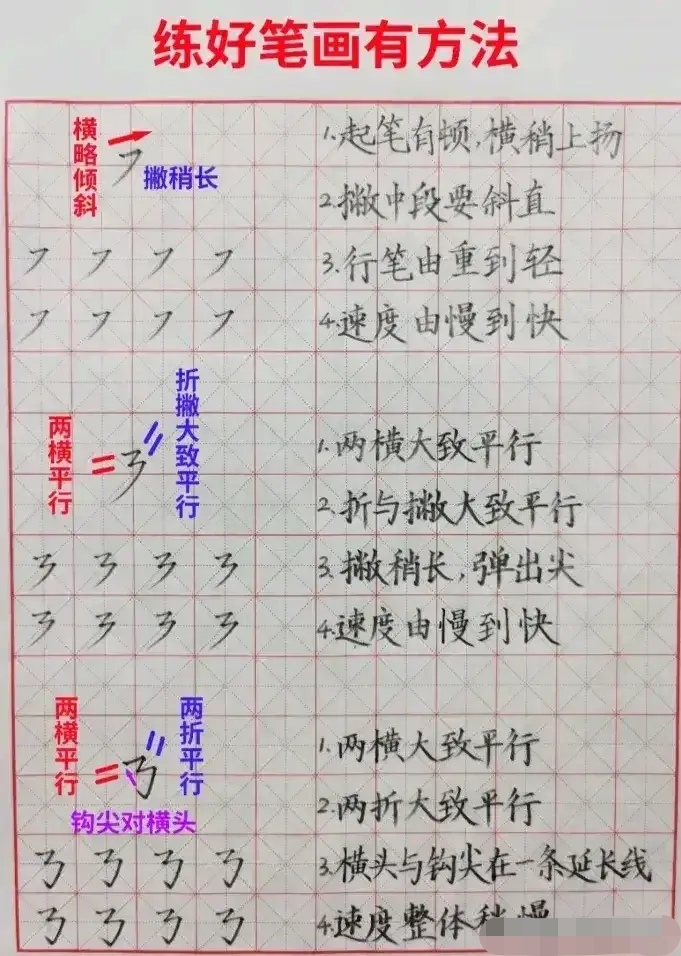 练好笔画有方法
横略倾斜
撇稍长
1.起笔有顿,横稍上扬
2.撇中段要斜直
3.行笔由重到轻
4.速度由慢到快
㇇ ㇇ ㇇ ㇇
㇇ ㇇ ㇇ ㇇
两横平行
折撇大致平行
1.两横大致平行
2.折与撇大致平行
3.撇稍长,弹出尖
4.速度由慢到快
㇋ ㇋ ㇋ ㇋
㇋ ㇋ ㇋ ㇋
两横平行
两折平行
钩尖对横头
1.两横大致平行
2.两折大致平行
3.横头与钩尖在一条延长线
4.速度整体稍慢
㇡ ㇡ ㇡ ㇡
㇡ ㇡ ㇡ ㇡